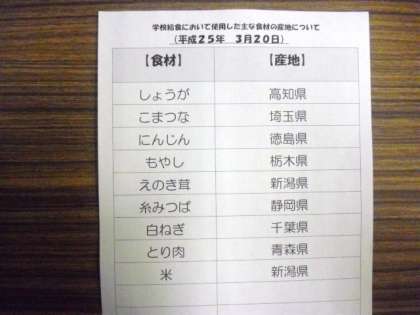 学校給食において使用した主な食材の産地について
（平成２５年　３月２０日）
【食材】　【産地】
しょうが　高知県
こまつな　埼玉県
にんじん　徳島県
もやし　栃木県
えのき茸　新潟県
糸みつば　静岡県
白ねぎ　千葉県
とり肉　青森県
米　新潟県